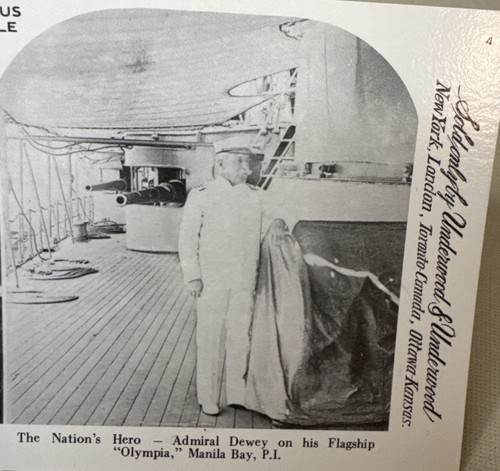 US
LE
4
Sold only by Underwood & Underwood
New York, London, Toronto-Canada, Ottawa-Kansas.
The Nation's Hero — Admiral Dewey on his Flagship
"Olympia," Manila Bay, P.I.